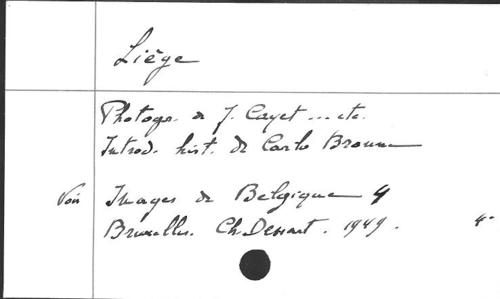 Liège
Photogr. de J. Cayet ... etc.
Introd. hist. de Carlo Bronne
Voir Images de Belgique 4
Bruxelles. Ch. Dessart. 1949. 4°